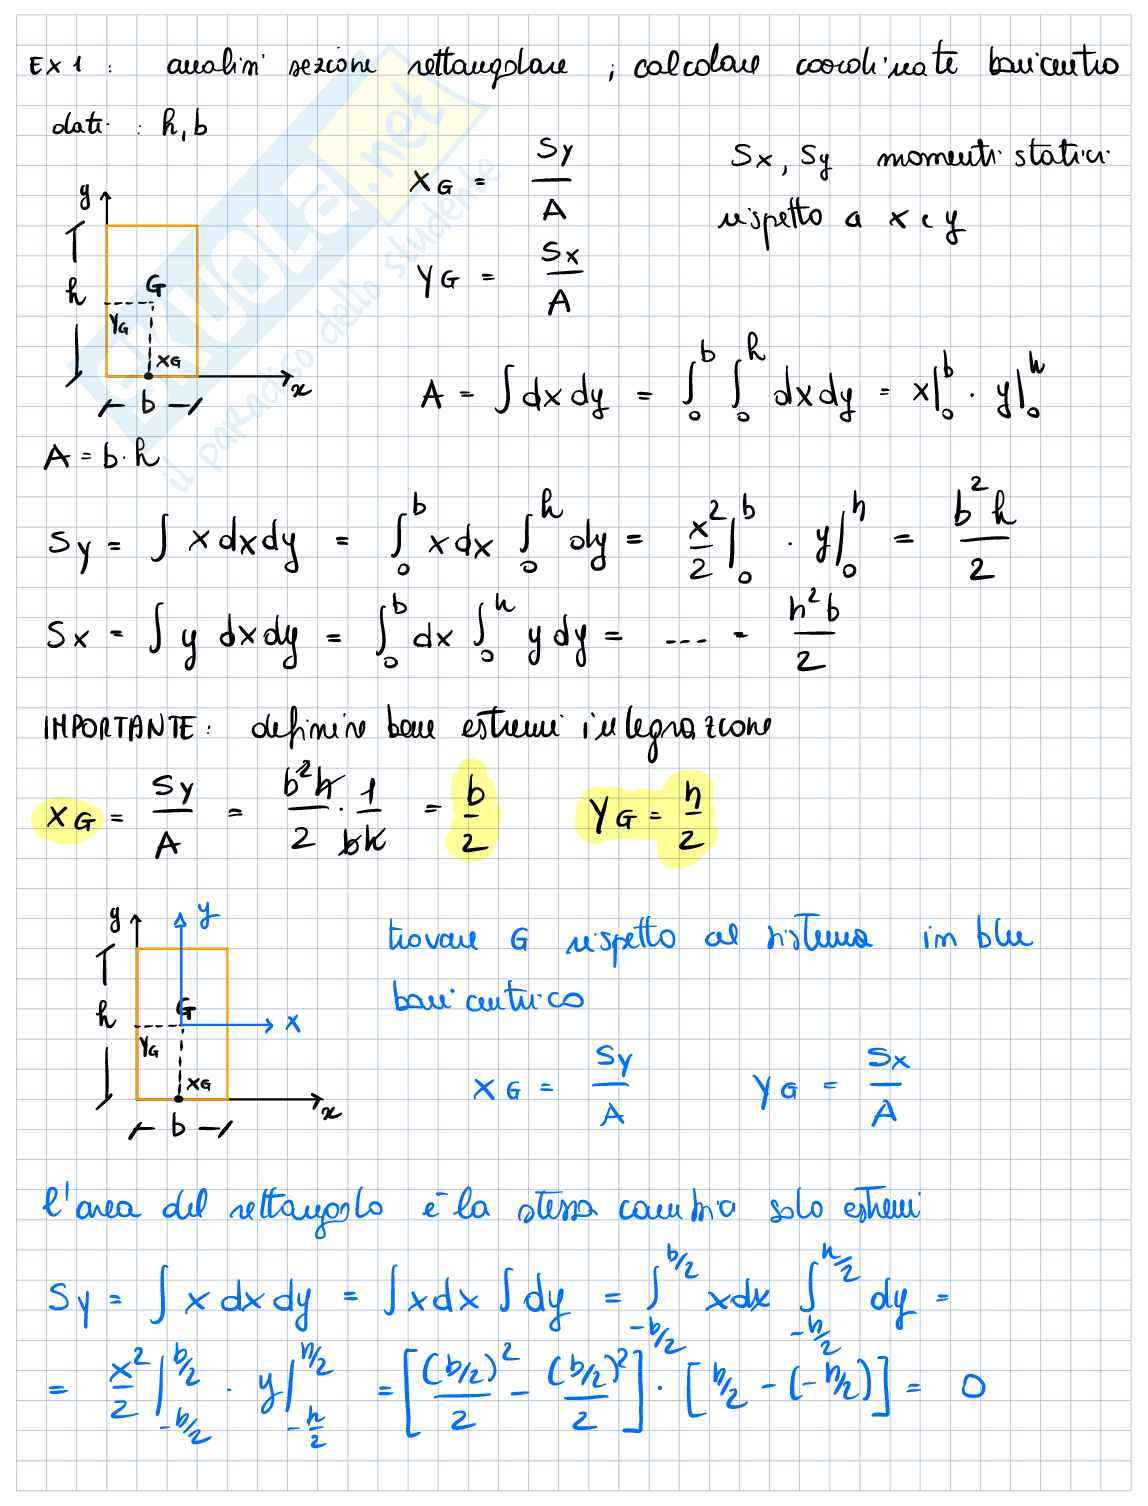 EX 1 : analisi sezione rettangolare ; calcolare coordinate baricentro
dati : h, b
XG = Sy / A
Sx, Sy momenti statici
rispetto a x e y
YG = Sx / A
y
h
G
YG
XG
x
b
A = ∫ dx dy = ∫₀ᵇ ∫₀ʰ dx dy = x|₀ᵇ · y|₀ʰ
A = b · h
Sy = ∫ x dx dy = ∫₀ᵇ x dx ∫₀ʰ dy = x²/2 |₀ᵇ · y|₀ʰ = b²h / 2
Sx = ∫ y dx dy = ∫₀ᵇ dx ∫₀ʰ y dy = ---- = h²b / 2
IMPORTANTE : definire bene estremi integrazione
XG = Sy / A = b²h / 2 · 1 / bh = b / 2 YG = h / 2
y
y
h
G
x
YG
XG
x
b
trovare G rispetto al sistema in blu
baricentrico
XG = Sy / A YG = Sx / A
l'area del rettangolo è la stessa cambia solo estremi
Sy = ∫ x dx dy = ∫ x dx ∫ dy = ∫_{-b/2}^{b/2} x dx ∫_{-h/2}^{h/2} dy =
= x²/2 |_{-b/2}^{b/2} · y|_{-h/2}^{h/2} = [(b/2)² / 2 - (b/2)² / 2] · [h/2 - (-h/2)] = 0
SKUOLA.net
il paradiso dello studente